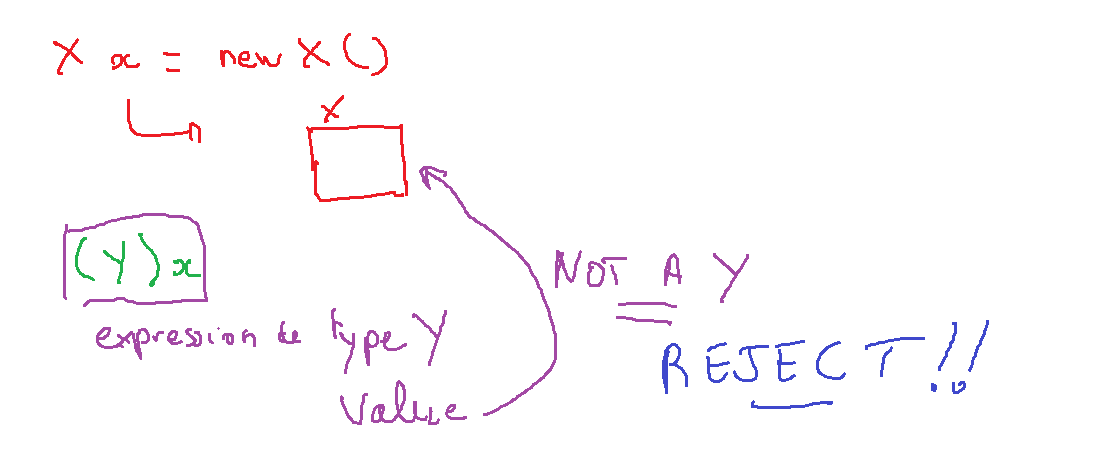 X x = new X()
X
(Y) x
expression de type Y
value
NOT A Y
REJECT!!